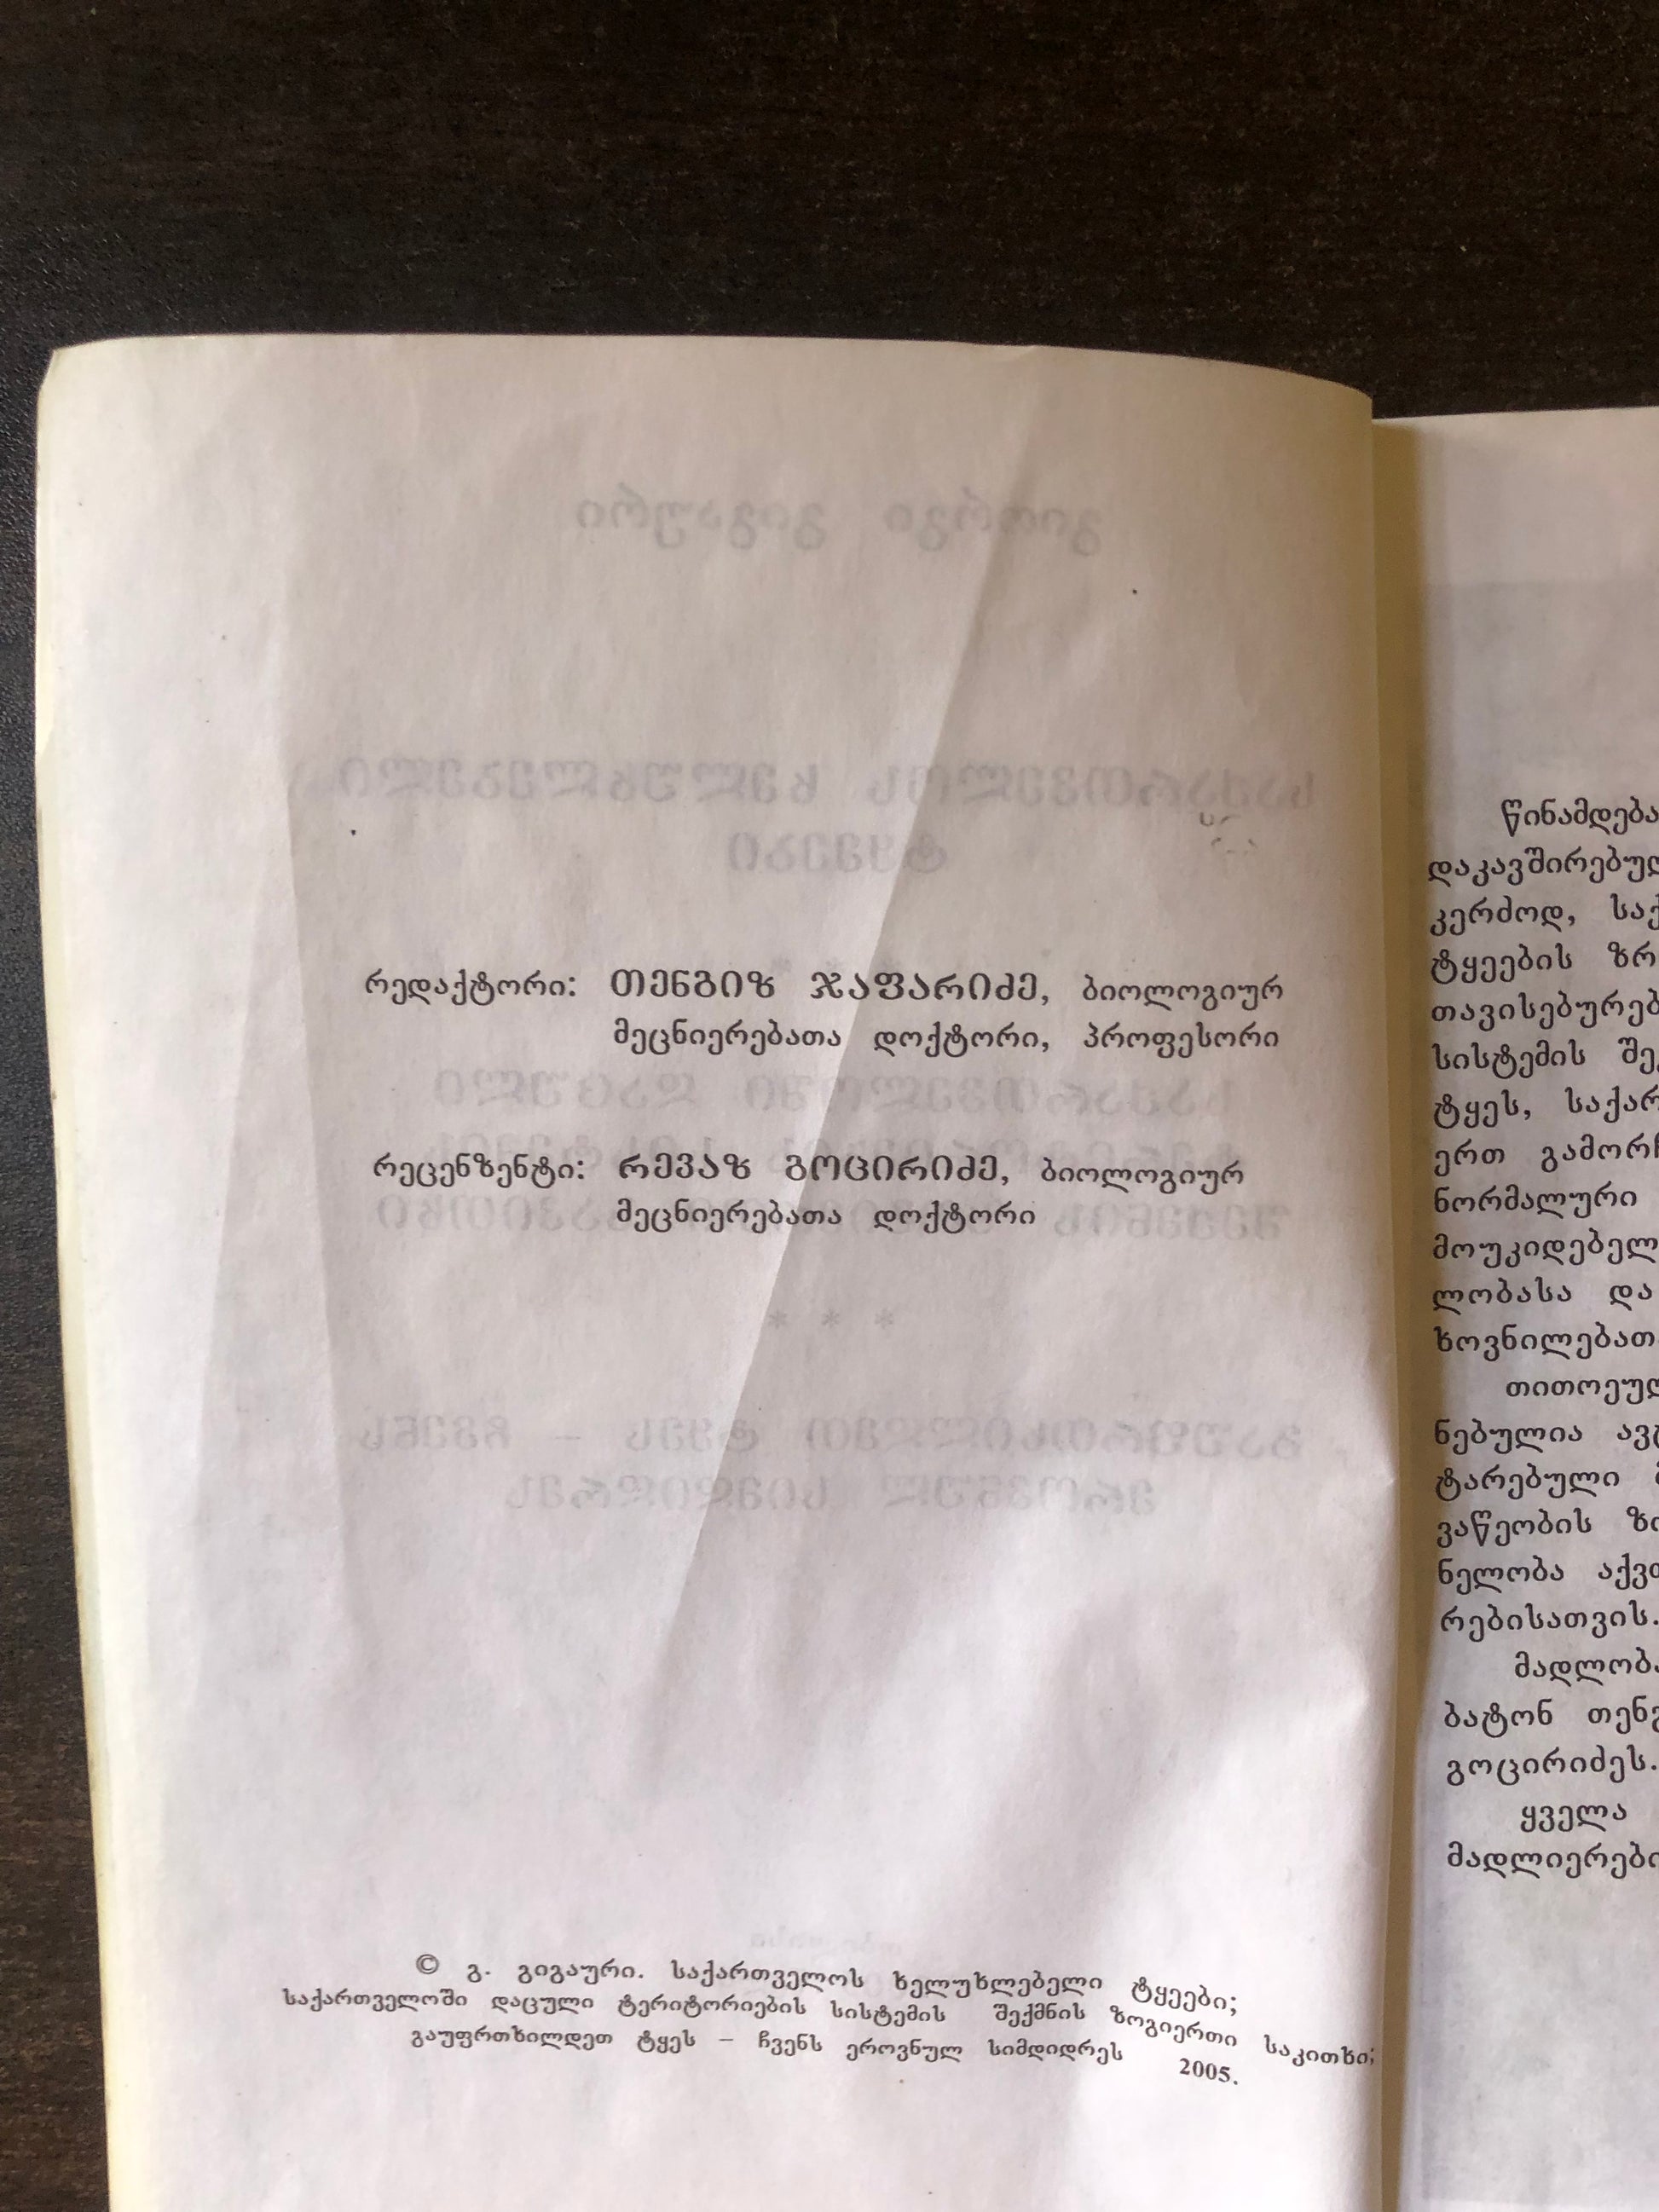 რედაქტორი: თენგიზ ჯაფარიძე, ბიოლოგიურ
მეცნიერებათა დოქტორი, პროფესორი
რეცენზენტი: რევაზ გოცირიძე, ბიოლოგიურ
მეცნიერებათა დოქტორი
© გ. გიგაური. საქართველოს ხელუხლებელი ტყეები;
საქართველოში დაცული ტერიტორიების სისტემის შექმნის ზოგიერთი საკითხი;
გაუფრთხილდეთ ტყეს – ჩვენს ეროვნულ სიმდიდრეს 2005.
წინამდება
დაკავშირებულ
კერძოდ, საქ
ტყეების ზრ
თავისებურებ
სისტემის შე
ტყეს, საქარ
ერთ გამორჩ
ნორმალური
მოუკიდებელ
ლობასა და
ხოვნილებათ
თითოეულ
ნებულია ავტ
ტარებული
ვაწეობის ზო
ნელობა აქვ
რებისათვის.
მადლობა
ბატონ თენგ
გოცირიძეს.
ყველა
მადლიერები